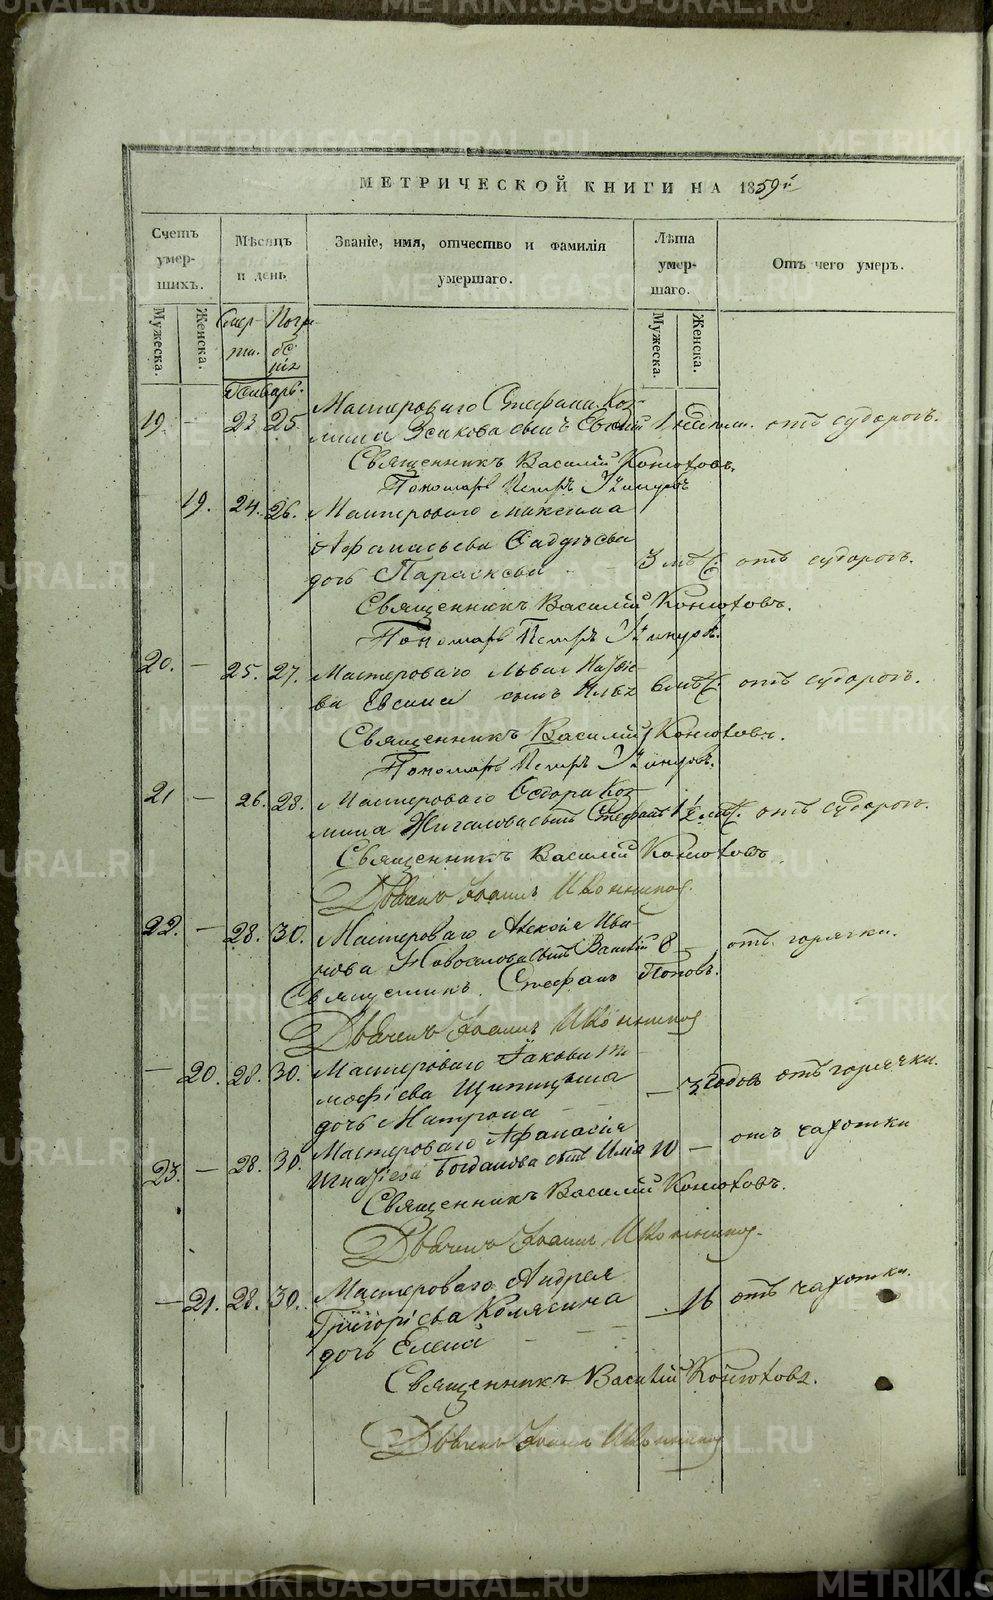 METRIKI.GASO-URAL.RU
МЕТРИЧЕСКОЙ КНИГИ НА 1859й
Счетъ умер-шихъ.
Мѣсяцъ и день
Званіе, имя, отчество и фамилія умершаго.
Лѣта умер-шаго.
Отъ чего умеръ.
Мужеска.
Женска.
Смер-ти.
Погре-
Мужеска.
Женска.
Январь.
19. - 23. 25. Мастероваго Стефана Коз-
мина сынъ 1 недѣли. отъ судорогъ.
Священникъ Василій Конюховъ.
Пономарь Петръ
19. 24. 26. Мастероваго Максима
Афанасьева
дочь Параскева 3 мѣс. отъ судорогъ.
Священникъ Василій Конюховъ.
Пономарь Петръ
20. - 25. 27. Мастероваго Льва
сынъ 6 мѣс. отъ судорогъ.
Священникъ Василій Конюховъ.
Пономарь Петръ
21 - 26. 28. Мастероваго Ѳедора Коз-
мина Жигалова сынъ Стефанъ 1½ мѣс. отъ судорогъ.
Священникъ Василій Конюховъ.
Дьячекъ Іоаннъ Иконниковъ.
22. - 28. 30. Мастероваго Алексія Ива-
нова сынъ Василій 8 - отъ горячки.
Священникъ Стефанъ Поповъ.
Дьячекъ Іоаннъ Иконниковъ
- 20. 28. 30. Мастероваго Іакова Ти-
мофіева Щипицына
дочь Матрона - 3 годовъ отъ горячки.
23. - 28. 30. Мастероваго Афанасія
Игнатіева Богданова сынъ 10 - отъ чахотки
Священникъ Василій Конюховъ.
Дьячекъ Іоаннъ Иконниковъ.
- 21. 28. 30. Мастероваго Андрея
Григоріева Колясина
дочь Елена - 16 отъ чахотки.
Священникъ Василій Конюховъ.
Дьячекъ Іоаннъ Иконниковъ